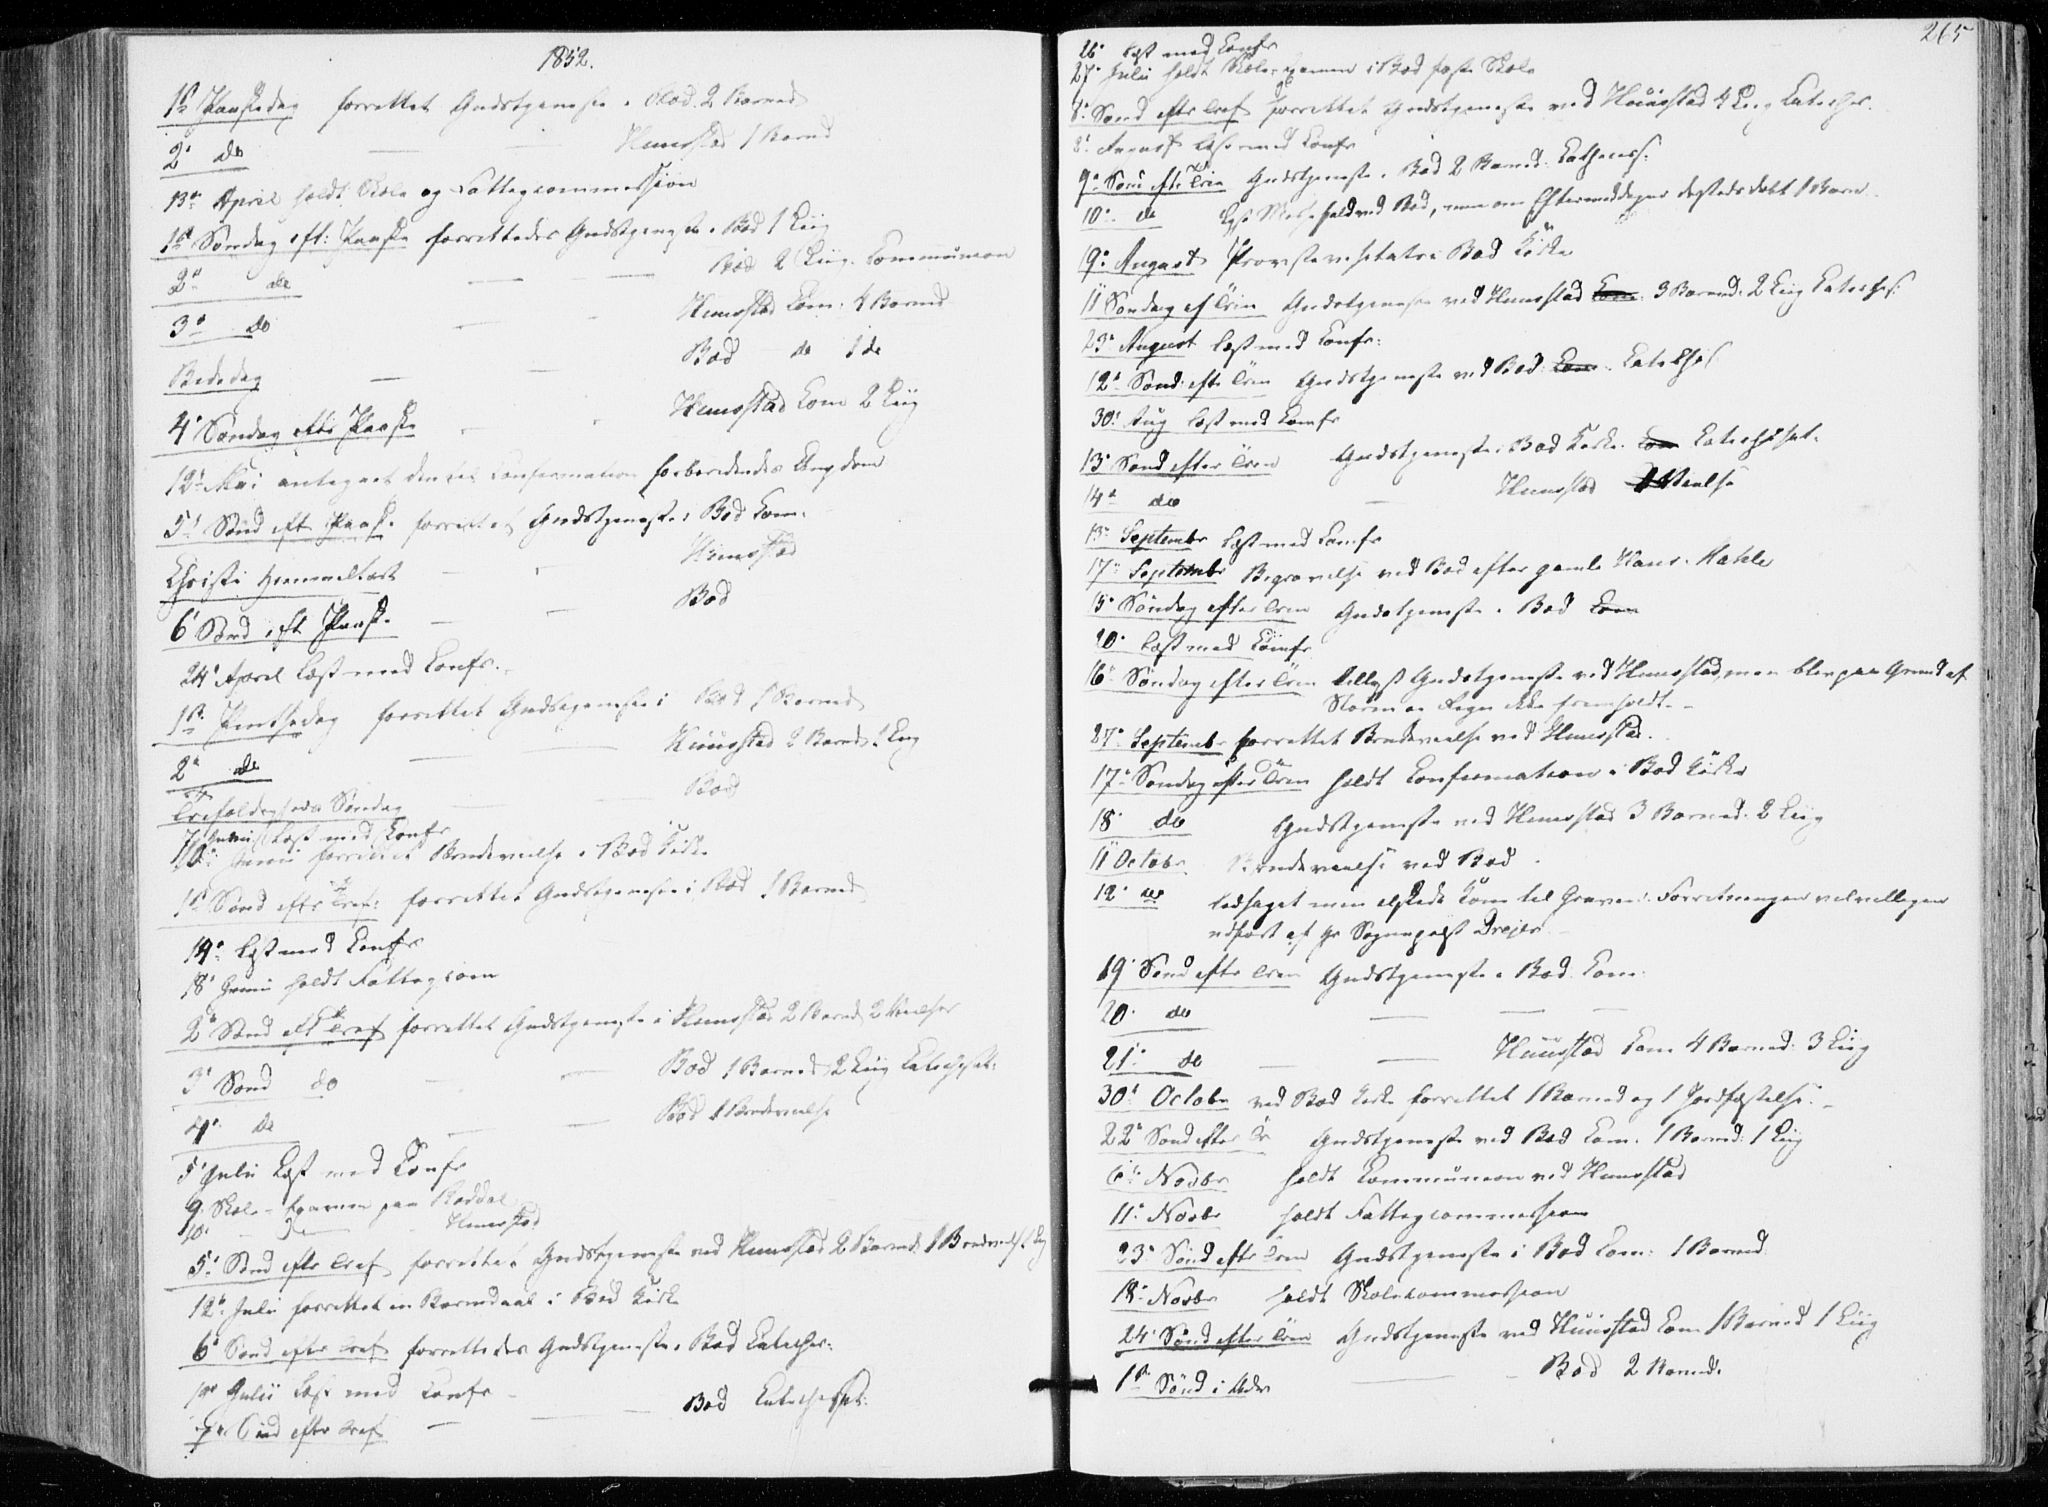 1852.
1ste Paaskedag forrettet Gudstjeneste i Bod. 2 Barned
2d do — — Huusstad 1 Barned
13de April holdt Skole og Fattigcommission
1ste Søndag eft: Paaske forrettedes Gudstjeneste i Bod 1 Liig
2d do — — Bod 2 Liig. Communion
3d do Huusstad Com. 4 Barned
Bededag — — Bod do 1 do
4d Søndag efter Paaske Huusstad Com 2 Liig
12te Mai antegnet den til Confirmation forberedende Ungdom
5te Sønd eft Paaske forrettet Gudstjeneste i Bod Com.
Christi Himmelfart — Huusstad
6 Sønd eft Paaske — Bod
24d April læst med Confr.
1ste Pintsedag forrettet Gudstjeneste i Bod 1 Barned
2d do — Huusstad 2 Barned 1 Liig
Trefoldigheds Søndag Bod
7 Junii læst med Confr
10de Junii forrettet Brudevielse i Bod Kirke
1ste Sønd efter Tref: forrettet Gudstjeneste i Bod 1 Barned
14d læst med Confr
18d Junii holdt Fattigcom
2d Sønd eft Tref forrettet Gudstjeneste i Huusstad 2 Barned 2 Vielser
3d Sønd do — — Bod 1 Barned 2 Liig Catechisat:
4d do — — Bod 1 Brudevielse
5 Julii Læst med Confr
9. Skole-Examen paa
10. — Do — Huusstad
5te Sønd efter Tref forrettet Gudstjeneste ved Huusstad 2 Barned 1 Brudeviels 1 Lig
12te Julii forrettet en Barnedaab i Bod Kirke
6d Sønd efter Tref forrettedes Gudstjeneste i Bod Cateches:
19d Julii læst med Confr
7de Sønd efter Tref — — Bod Catechisat:
265
26d læst med Confr
27d Julii holdt Skole-Examen i Bod faste Skole
8d Sønd efter Tref forrettet Gudstjeneste ved Huusstad 4 Liig Cateches.
2d August læst med Confr
9de Sønd efter Trin Gudstjeneste i Bod 2 Barned: Catheches:
10d do ved Bod, men om Eftermiddagen døbt 1 Barn
19d August Provstevisitats i Bod Kirke
11 Søndag ef Trin Gudstjeneste ved Huusstad Com. 3 Barned. 2 Liig Cateches:
23d August læst med Confr:
12te Sønd: efter Trin Gudstjeneste ved Bod: Com. Cateches
30d Aug læst med Confr
13d Sønd efter Trin Gudstjeneste i Bod Kirke. Com Catechisat.
14d do — Huusstad 1 Vielse
13d Septembr læst med Confr
17d Septembr Begravelse ved Bod efter gamle Hans
15d Søndag efter Trin Gudstjeneste i Bod Com
20d læst med Confr
16d Søndag efter Trin tillyst Gudstjeneste ved Huusstad, men blev paa Grund af
Storm og Regn ikke fremholdt. —
27d Septembr forrettet Brudevielse ved Huusstad.
17d Søndag efter Trin holdt Confirmation i Bod Kirke
18d do Gudstjeneste ved Huusstad 3 Barned. 2 Liig
11 Octobr Brudevielse ved Bod
12d do ledsaget min elskede Kone til Graven. Forretningen velvilligen
udført af Hr Sognepræst Drejer
19d Sønd efter Trin Gudstjeneste i Bod Com:
20d do — — —
21d do — — Huusstad Com 4 Barned: 3 Liig
30d Octobr ved Bod Kirke forrettet 1 Barned og 1 Jordfæstelse. —
22d Sønd efter Tr Gudstjeneste ved Bod Com. 1 Barned: 1 Liig
6te Novbr holdt Communion ved Huusstad
11d Novbr holdt Fattigcommission
23d Sønd efter Trin Gudstjeneste i Bod Com: 1 Barned.
18d Novbr holdt Skolekommission
24d Sønd efter Trin Gudstjeneste ved Huusstad Com 1 Barned 1 Liig
1ste Sønd i Adv — — Bod 2 Barned.